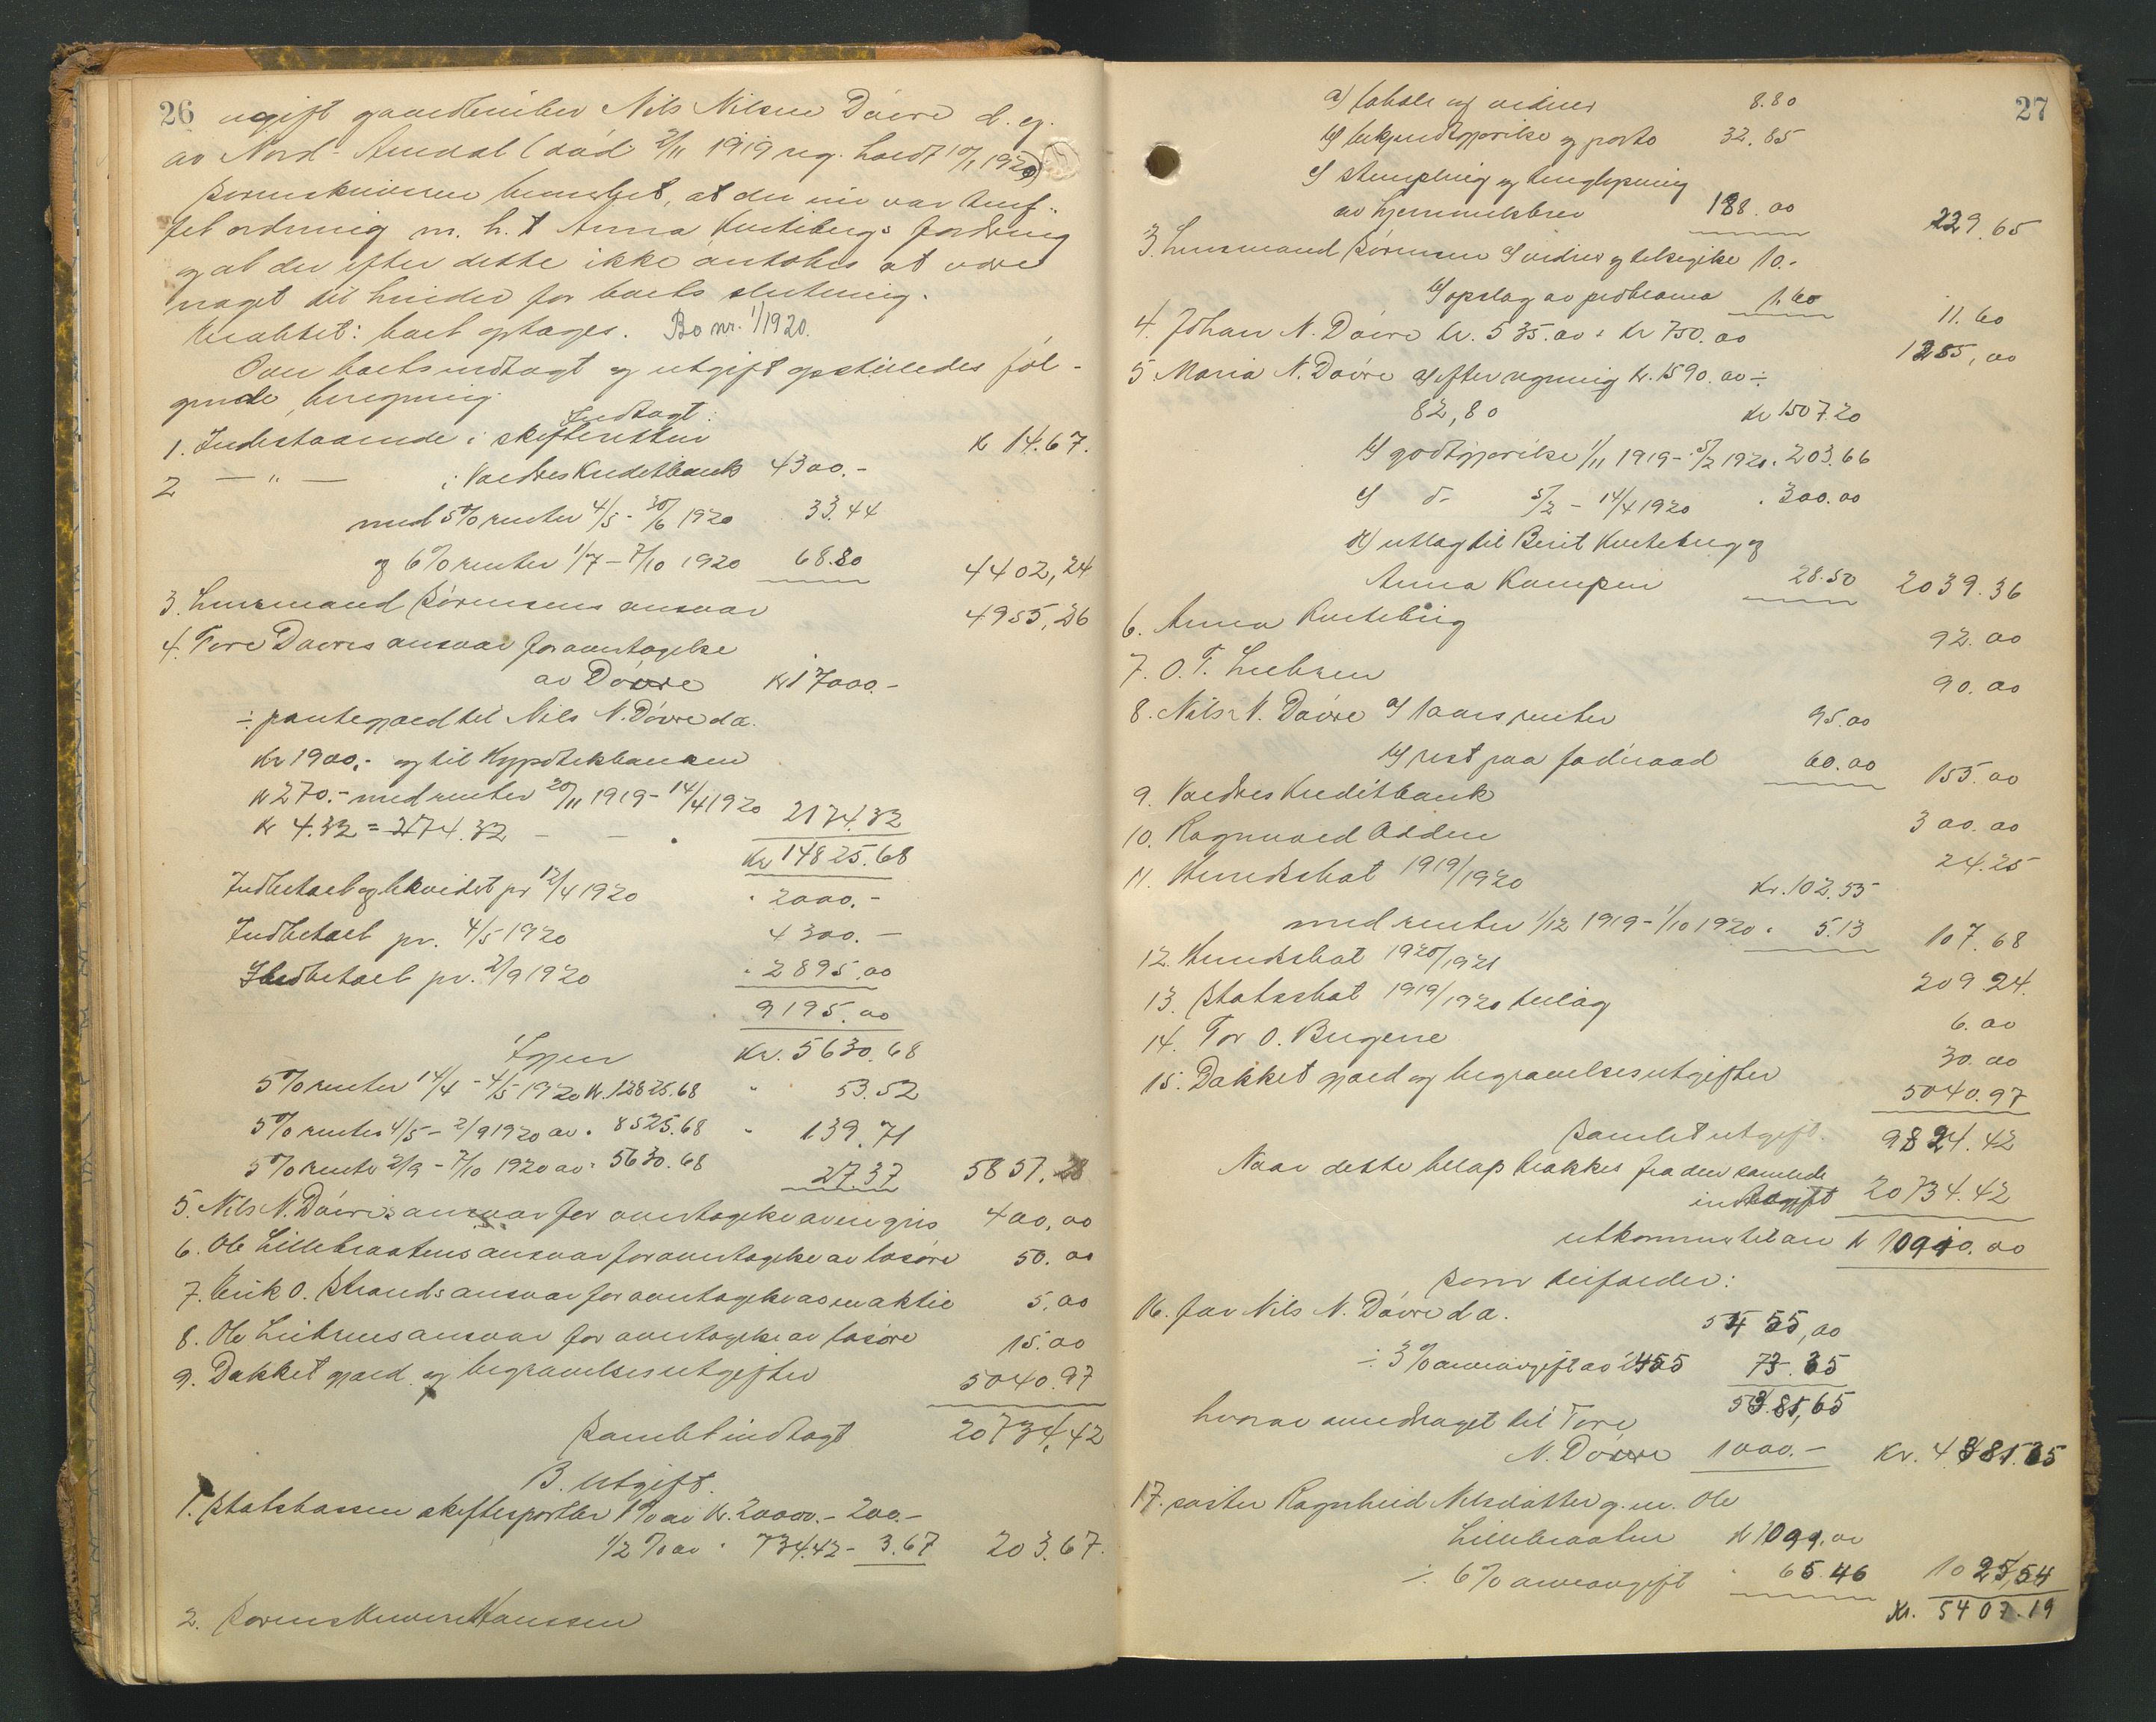 26
ugift gaardbruker Nils Nilsen Dövre d. y.
av Nord-Aurdal (död 2/11 1919 reg. holdt 10/1 1920)
Sorenskriveren bemerket, at der nu var truf-
fet ordning m. h. t. Anna Kvitebergs fordring
og at der efter dette ikke antokes at være
noget til hinder for boets slutning.
Resultat: boet optages. Bo nr. 1/1920.
Over boets indtægt og utgift opstilledes föl-
gende beregning
Indtægt:
1. Indestaaende i skifteretten Kr 14.67.
2 — " — i Valdres Kreditbank 4300.-
med 5% renter 4/5 - 30/6 1920 33.44
og 6% renter 1/7 - 7/10 1920 68.80 4402,24
3. Lensmand Sörensens ansvar 4955,26
4. Tore Dövres ansvar for overtagelse
av Dövre Kr 17000.-
÷ pantegjæld til Nils N. Dövre d.æ.
Kr 1900,- og til Hypotekbanken
Kr 270.- med renter 20/11 1919 - 14/4 1920
Kr 4.32 = 2174.32 — — " 2174.32
Kr 14825.68
Indbetalt og likvidert pr 12/4 1920 " 2000.-
Indbetalt pr. 4/5 1920 4300.-
Indbetalt pr. 2/9 1920 " 2895,00
9195.00
Igjen Kr. 5630.68
5% renter 14/4 - 4/5 1920 Kr. 12825.68 " 53.52
5% renter 4/5 - 2/9 1920 av " 8525.68 " 139.71
5% renter 2/9 - 7/10 1920 av " 5630.68 27.37 5851.28
5. Nils N. Dövres ansvar for overtagelse av en gris 400,00
6. Ole Lillebraatens ansvar for overtagelse av lösöre 50.00
7. Erik O. Strands ansvar for overtagelse av en aktie 5,00
8. Ole ansvar for overtagelse av lösöre 15.00
9. Dækket gjæld og begravelsesutgifter 5040.97
Samlet indtægt 20734,42
B. Utgift.
1. Statskassen skiftesportler 1% av Kr. 20000.- 200.-
1/2 % av " 734.42 - 3.67 203.67.
2. Sorenskriver Hanssen
27
a) takst og vidner 8.80
b) bekjendtgjörelse og porto 32.85
c) stempling og tinglysning
av hjemmelsbrev 188.00 229.65
3. Lensmand Sörensen a) vidner og tilsigelse 10.-
b) opslag av proklama 1.60 11.60
4. Johan N. Dövre kr. 535.00 + kr 750.00 1285,00
5 Maria N. Dövre a) efter regning Kr. 1590.00 ÷
82,80 Kr 1507.20
b) godtgjörelse 1/11 1919 - 5/2 1920 " 203.66
c) do 5/2 - 14/4 1920 " 300.00
d) utlæg til Berit Kviteberg og
Anna Kampen 28.50 2039.36
6. Anna Kviteberg 92.00
7. O. T. 90.00
8. Nils N. Dövre a) 1 aars renter 95.00
b) rest paa föderaad 60.00 155.00
9. Valdres Kreditbank 300.00
10. Ragnvald Ødden 24.25
11. Herredskat 1919/1920 Kr. 102.55
med renter 1/12 1919 - 1/10 1920 " 5.13 107.68
12. Herredskat 1920/1921 209 24.
13. Statsskat 1919/1920 tillæg 6.00
14. Tor O. Bergene 30.00
15. Dækket gjæld og begravelsesutgifter 5040.97
Samlet utgift. 9824.42
Naar dette belöp trækkes fra den samlede
indtægt 20734.42
utkommer til arv Kr 10910.00
som tilfalder:
16. far Nils N. Dövre d.æ. 5455,00
÷ 3% arveavgift av 2455 73.35
5381,65
hvorav avdraget til Tore
N. Dövre 1000.- Kr. 4381.65
17. söster Ragnhild Nilsdatter g. m. Ole
Lillebraaten Kr 1091.00
÷ 6% arveavgift " 65.46 1025,54
Kr. 5407.19